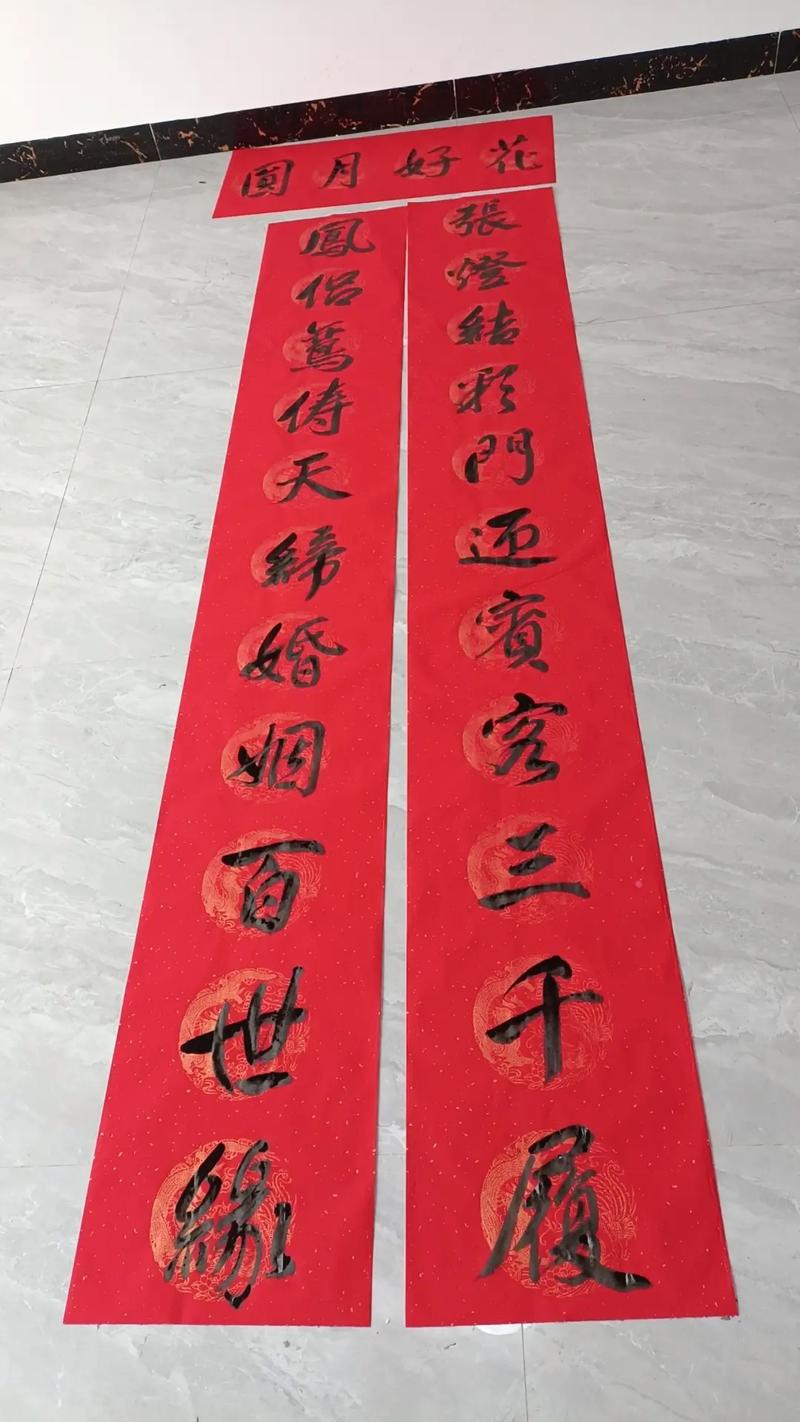 花好月圓
張燈結彩門迎賓客三千履
鳳侶鴛俦天締婚姻百世緣